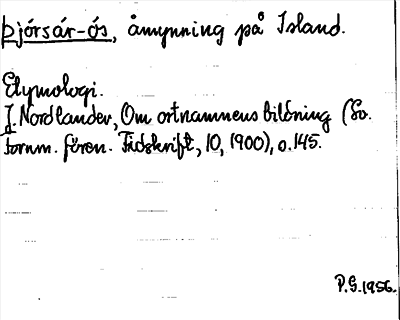 Þjórsár-ós, åmynning på Island.
Etymologi.
J. Nordlander, Om ortnamnens bildning (Sv.
fornm. fören. Tidskrift, 10, 1900), s. 145.
P.G. 1956.